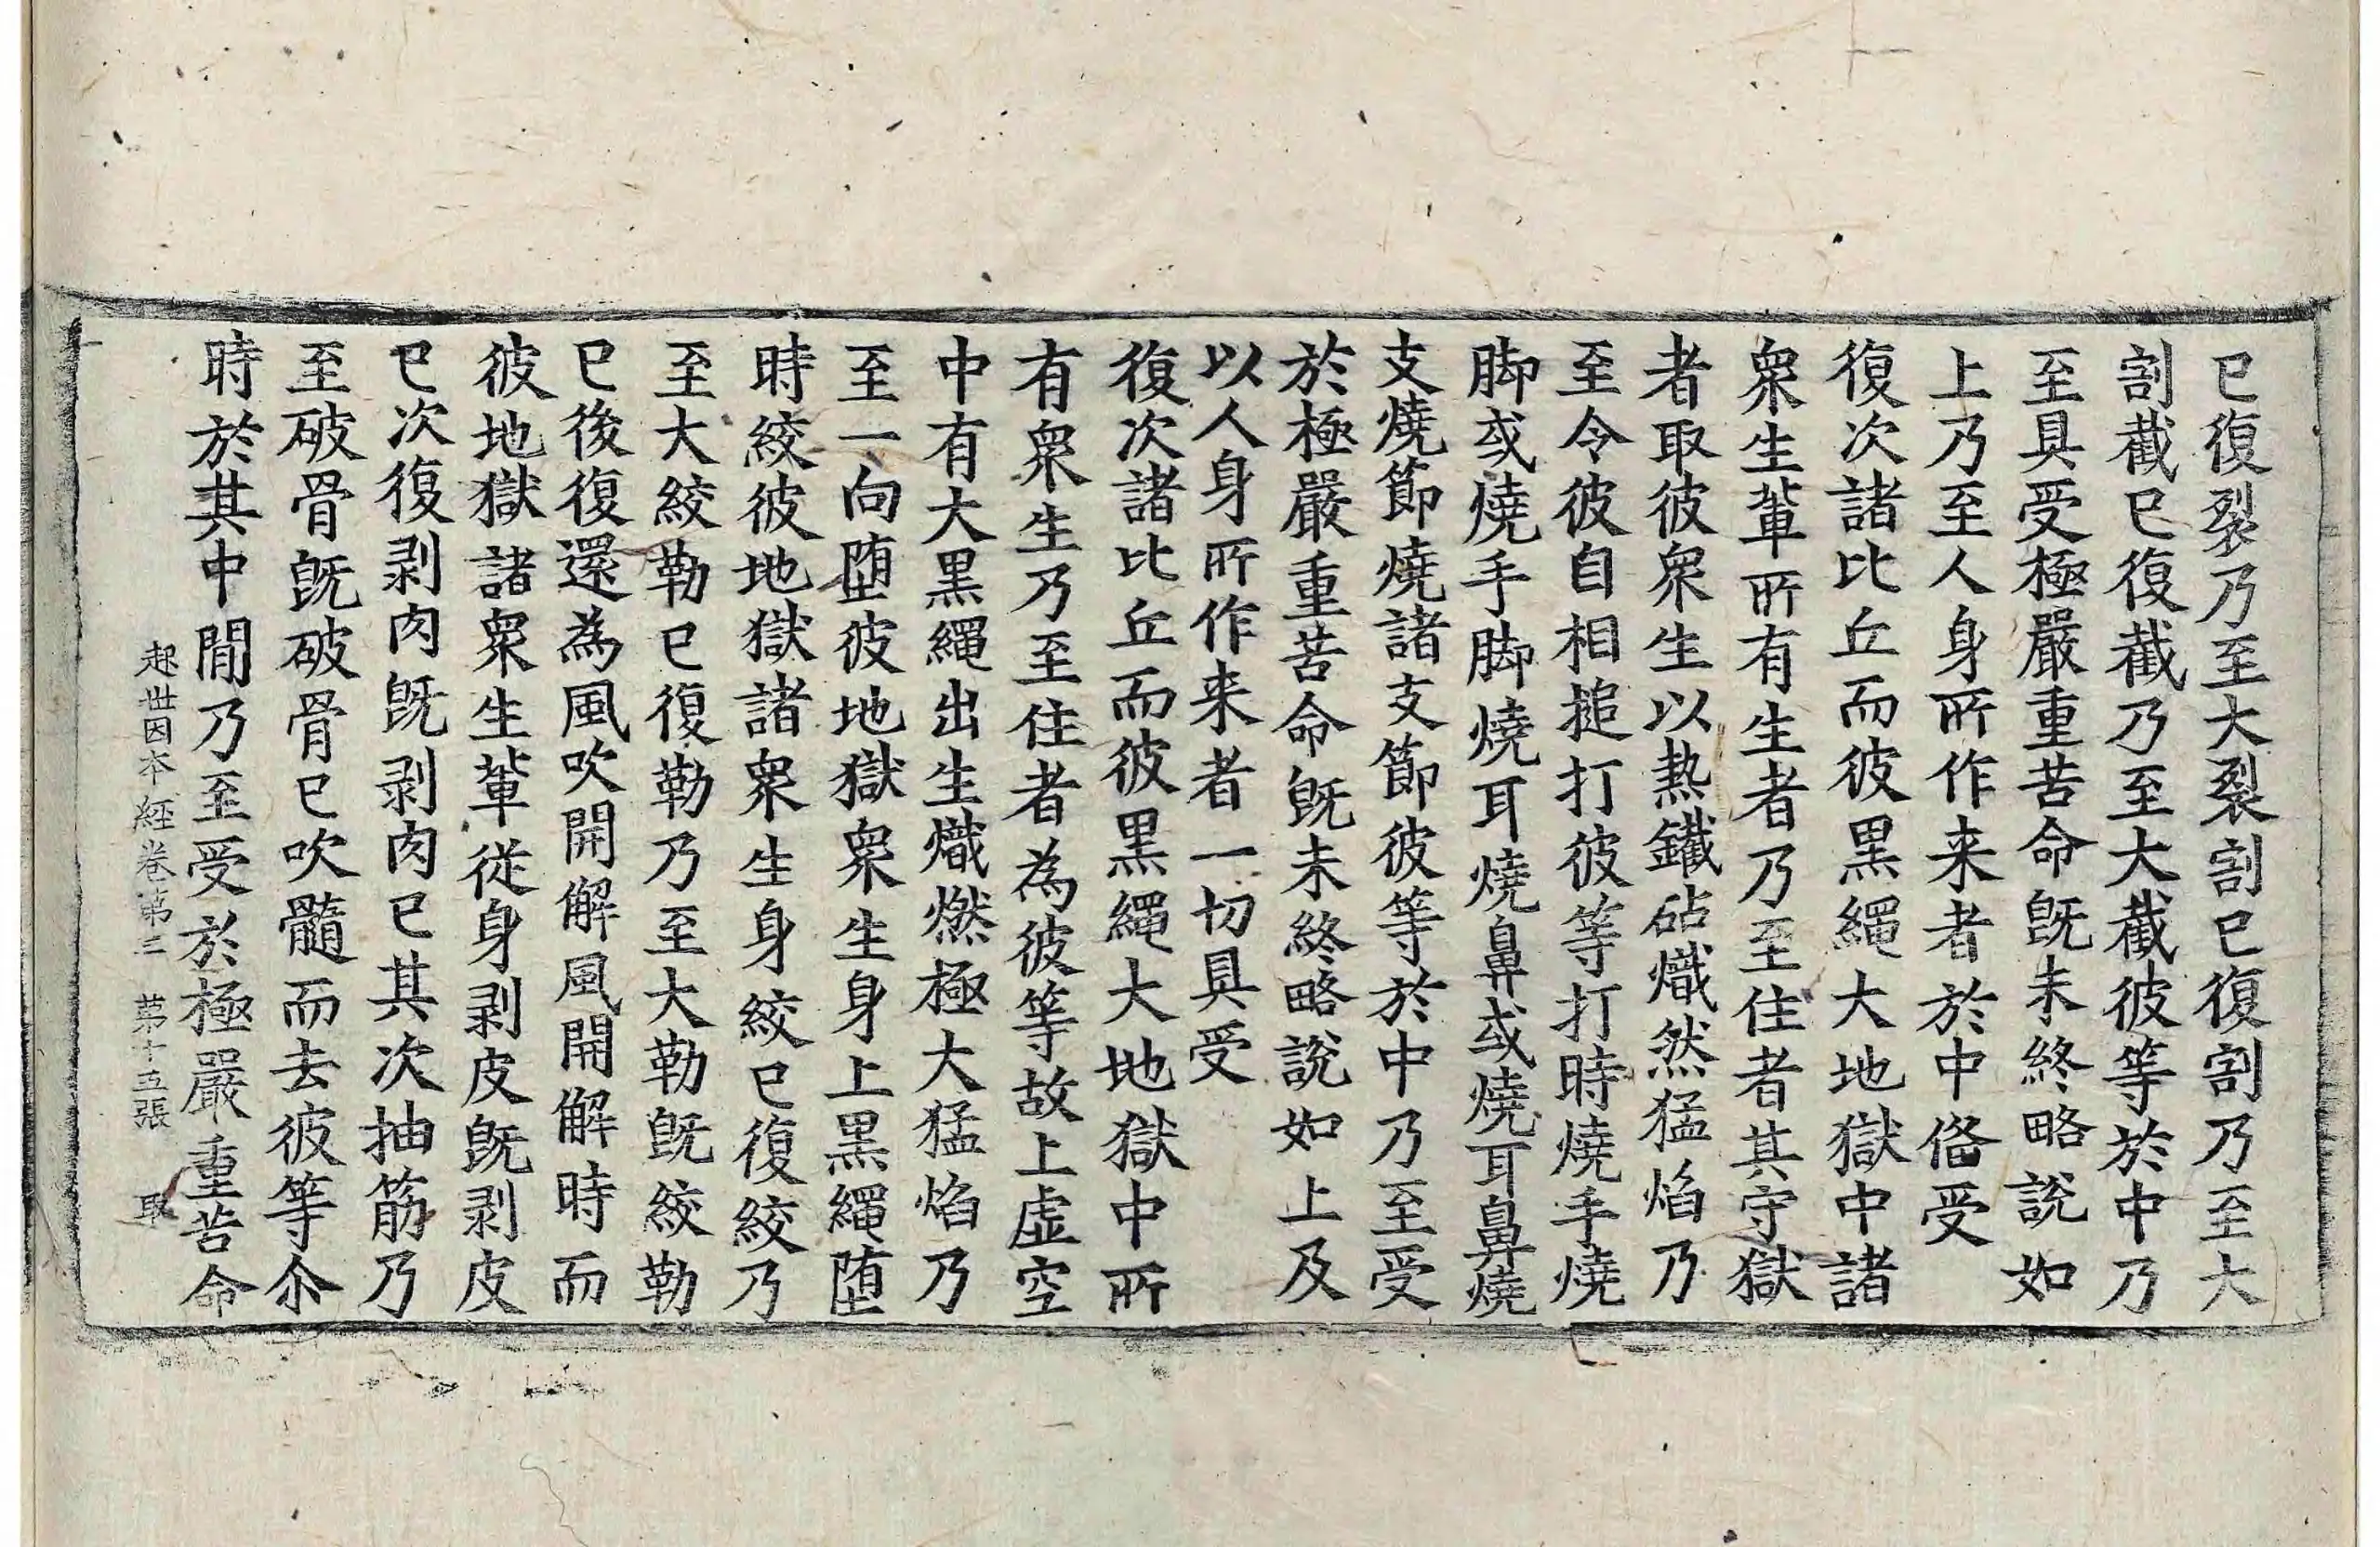 已復裂乃至大裂割已復割乃至大
割截已復截乃至大截彼等於中乃
至具受極嚴重苦命旣未終略說如
上乃至人身所作来者於中俻受
復次諸比丘而彼黑繩大地獄中諸
衆生輩所有生者乃至住者其守獄
者取彼衆生以熱鐵砧熾然猛焰乃
至令彼自相搥打彼等打時燒手燒
脚或燒手脚燒耳燒鼻或燒耳鼻燒
支燒節燒諸支節彼等於中乃至受
於極嚴重苦命旣未終略說如上及
以人身所作来者一切具受
復次諸比丘而彼黑繩大地獄中所
有衆生乃至住者為彼等故上虛空
中有大黑繩出生熾燃極大猛焰乃
至一向堕彼地獄衆生身上黑繩堕
時絞彼地獄諸衆生身絞已復絞乃
至大絞勒已復勒乃至大勒旣絞勒
已後復還為風吹開解風開解時而
彼地獄諸衆生輩從身剥皮旣剥皮
已次復剥肉旣剥肉已其次抽筋乃
至破骨旣破骨已吹髓而去彼等尒
時於其中間乃至受於極嚴重苦命
起世因本經卷第二 第十五張 取